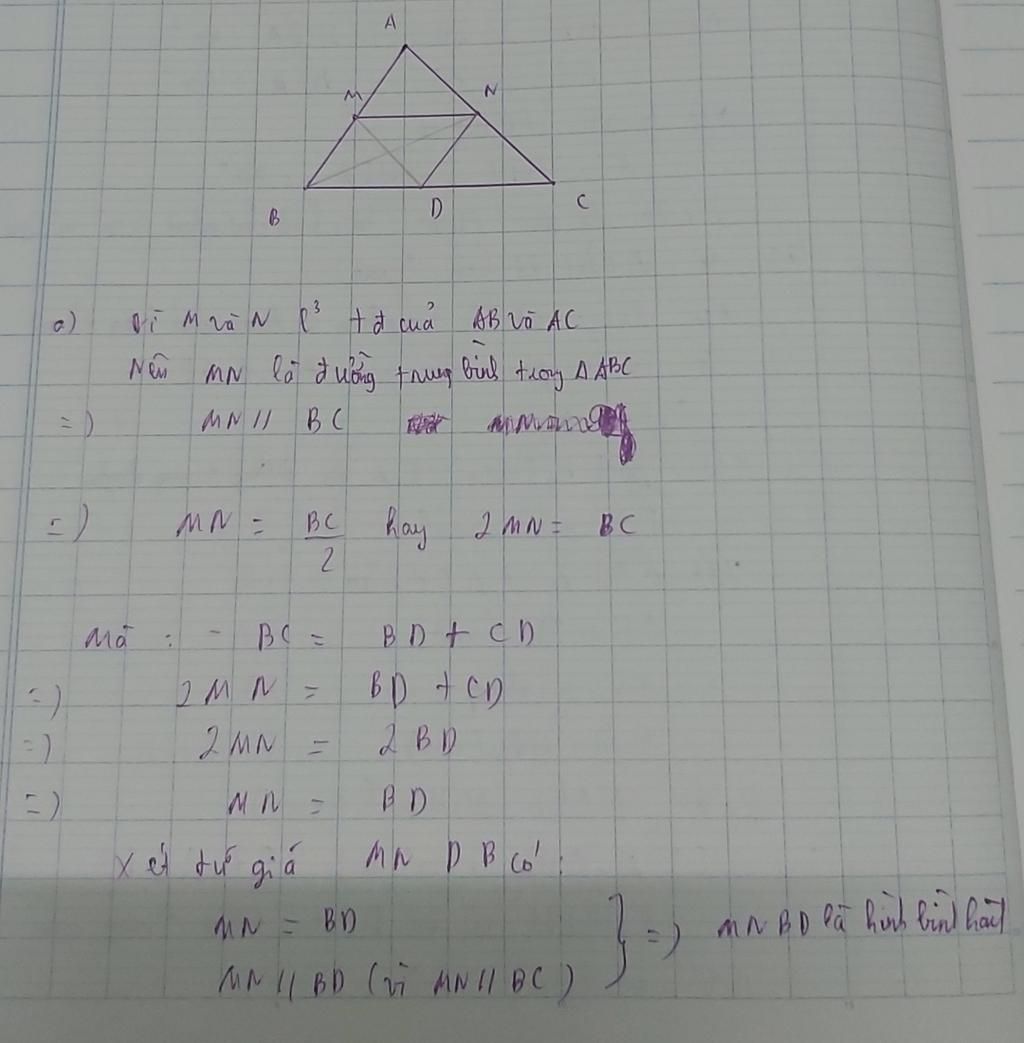 A
M N
B D C
a) Vì M và N l³ tđ cuả AB và AC
Nên MN là đường trung bình trong Δ ABC
=) MN // BC
=) MN = BC/2 hay 2MN = BC
Mà : - BC = BD + CD
=) 2MN = BD + CD
=) 2MN = 2BD
=) MN = BD
Xét tứ giá MNDB có :
MN = BD
MN // BD (vì MN // BC) } =) MNBD là hình bình hàh